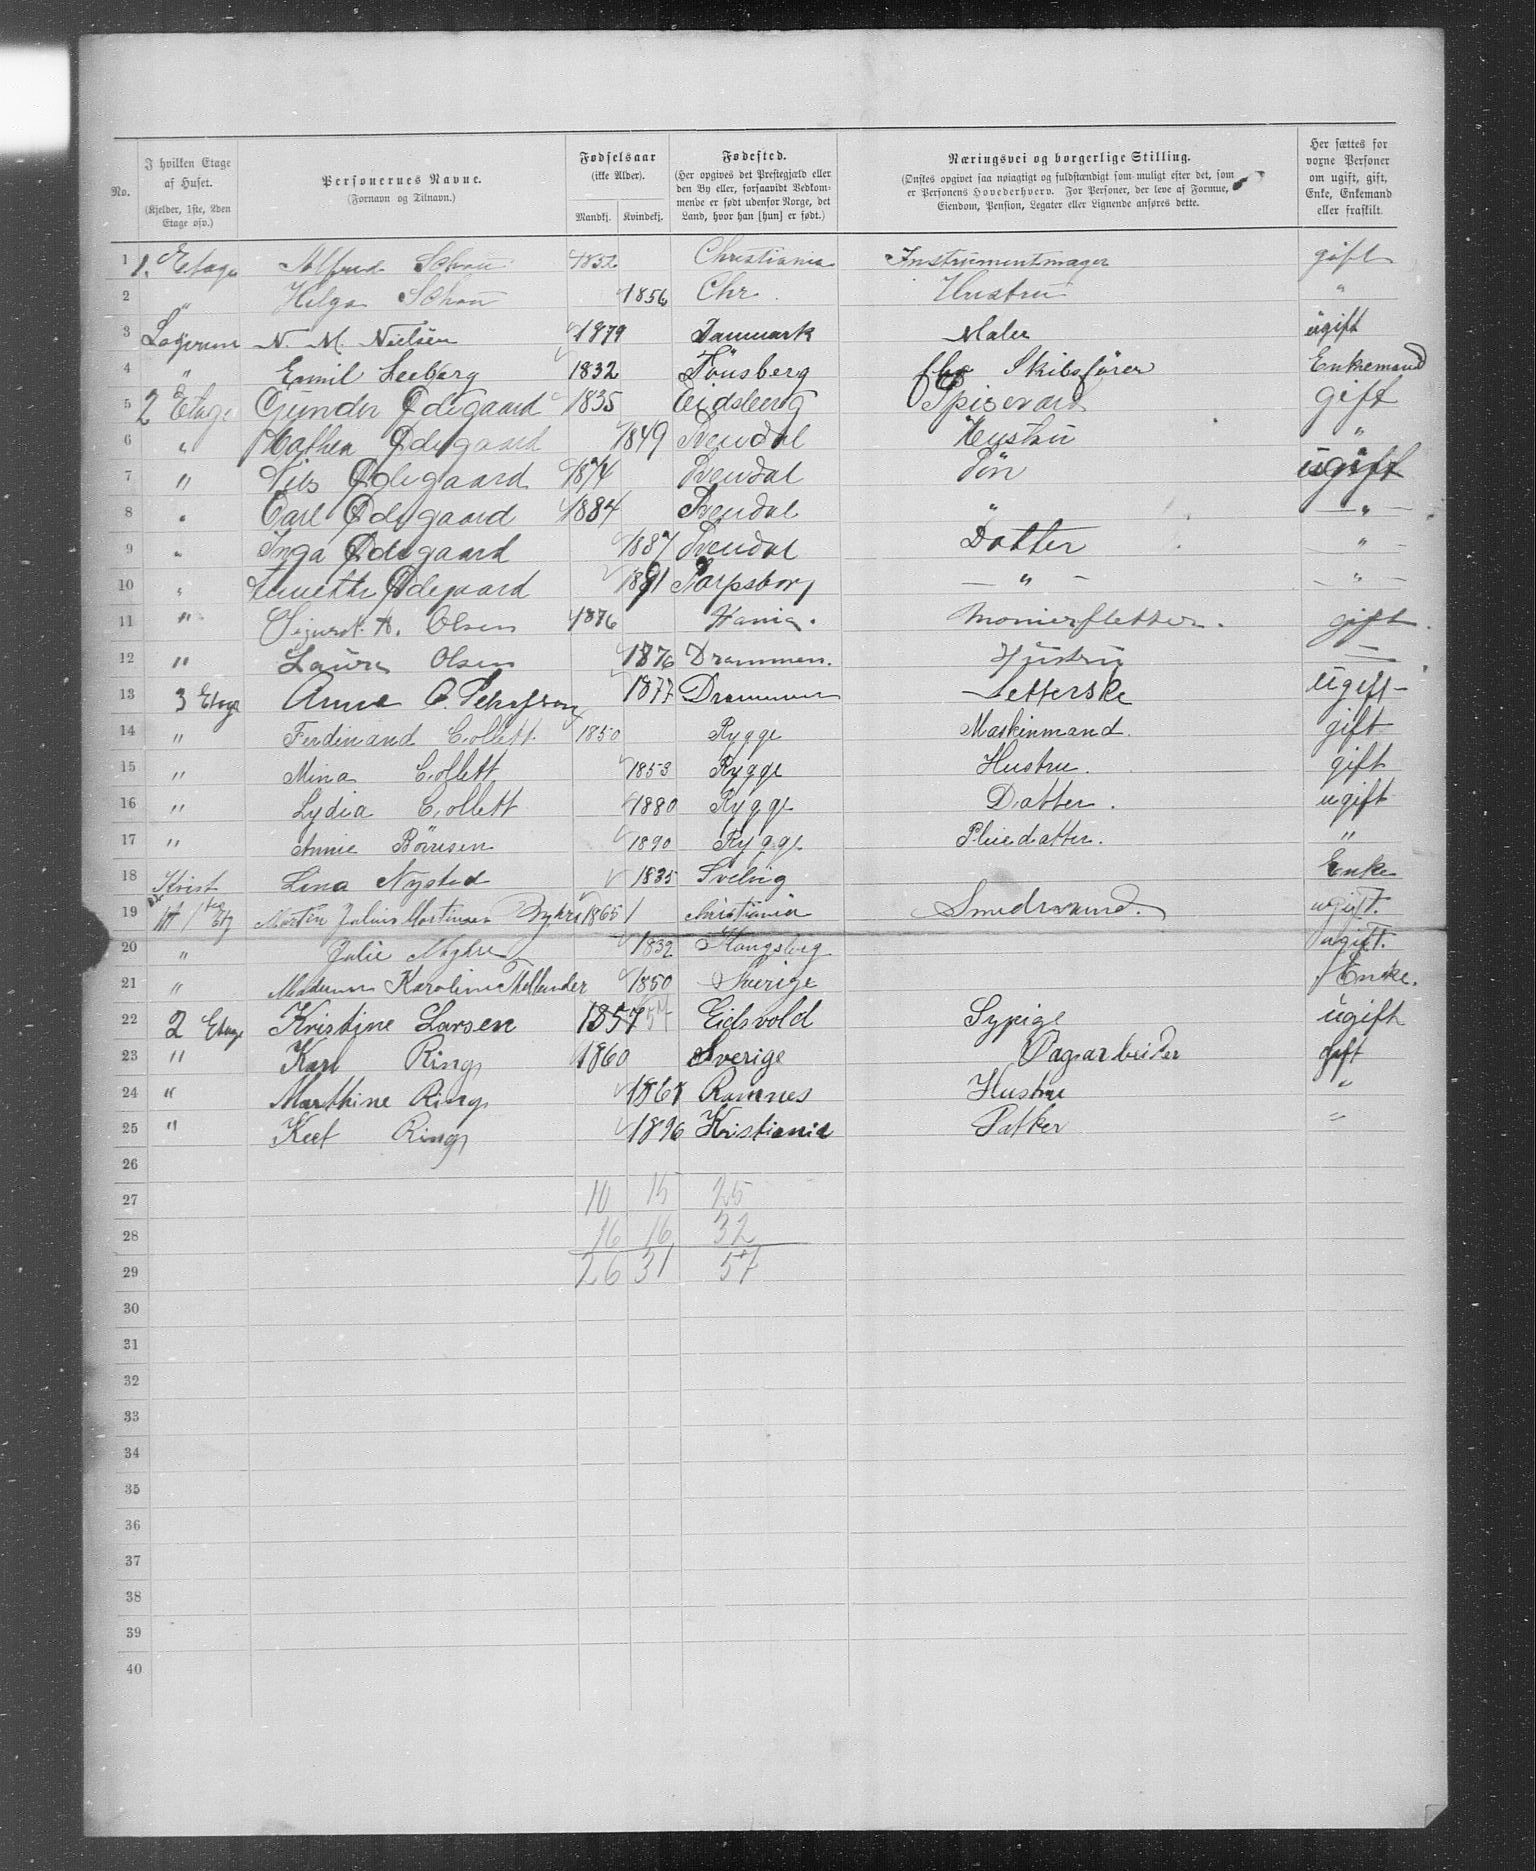 No.
I hvilken Etage af Huset. (Kjelder, 1ste, 2den Etage osv.)
Personernes Navne. (Fornavn og Tilnavn.)
Fødselsaar (ikke Alder). Mandkj. Kvindekj.
Fødested. (Her opgives det Prestegjæld eller den By eller, forsaavidt Vedkommende er født udenfor Norge, det Land, hvor han [hun] er født.)
Næringsvei og borgerlige Stilling. (Ønskes opgivet saa nøiagtigt og fuldstændigt som muligt efter det, som er Personens Hovederhverv. For Personer, der leve af Formue, Eiendom, Pension, Legater eller Lignende anføres dette.
Her sættes for vogne Personer om ugift, gift, Enke, Enkemand eller fraskilt.
1 1. Etage Alfred Schou 1832 Christiania Instrumentmager gift
2 " Helga Schou 1856 Chr. Hustru "
3 N. M. Nielsen 1879 Danmark Maler ugift
4 " Emil Seeberg 1832 Tönsberg Skibsfører Enkemand
5 2 Etage Gunder Ødegaard 1835 Eidsberg gift
6 " Mathea Ødegaard 1849 Hustru "
7 " Nils Ødegaard 1874 Sön ugift
8 " Carl Ødegaard 1884 " "
9 " Inga Ødegaard 1887 Datter "
10 " Ødegaard 1891 Sarpsborg " "
11 " Sigurd A. Olsen 1876 gift
12 " Laura Olsen 1876 Drammen. Hustru —
13 3 Etage Anna 1877 Drammen Setterske ugift
14 " Ferdinand Collett 1850 Rygge Maskinmand. gift
15 " Mina Collett 1853 Rygge Hustru. gift
16 " Lydia Collett 1880 Rygge Datter. ugift
17 " Annie 1890 Rygge Pleiedatter. "
18 Kvist Lina Nysted 1835 Svelvig Enke
19 Julius 1865 1 Christiania Smedsvend. ugift.
20 " Julie 1832 Kongsberg ugift.
21 " Karoline 1850 Sverige Encke.
22 2 Etage Kristine Larsen 1857 57 Eidsvold Sypige ugift
23 " Karl Ring 1860 Sverige Dagarbeider gift
24 " Marthine Ring Ramnes Hustru "
25 " Ring 1896 Kristiania Datter "
26
27 10 15 25
28 16 16 32
29 26 31 57
30
31
32
33
34
35
36
37
38
39
40